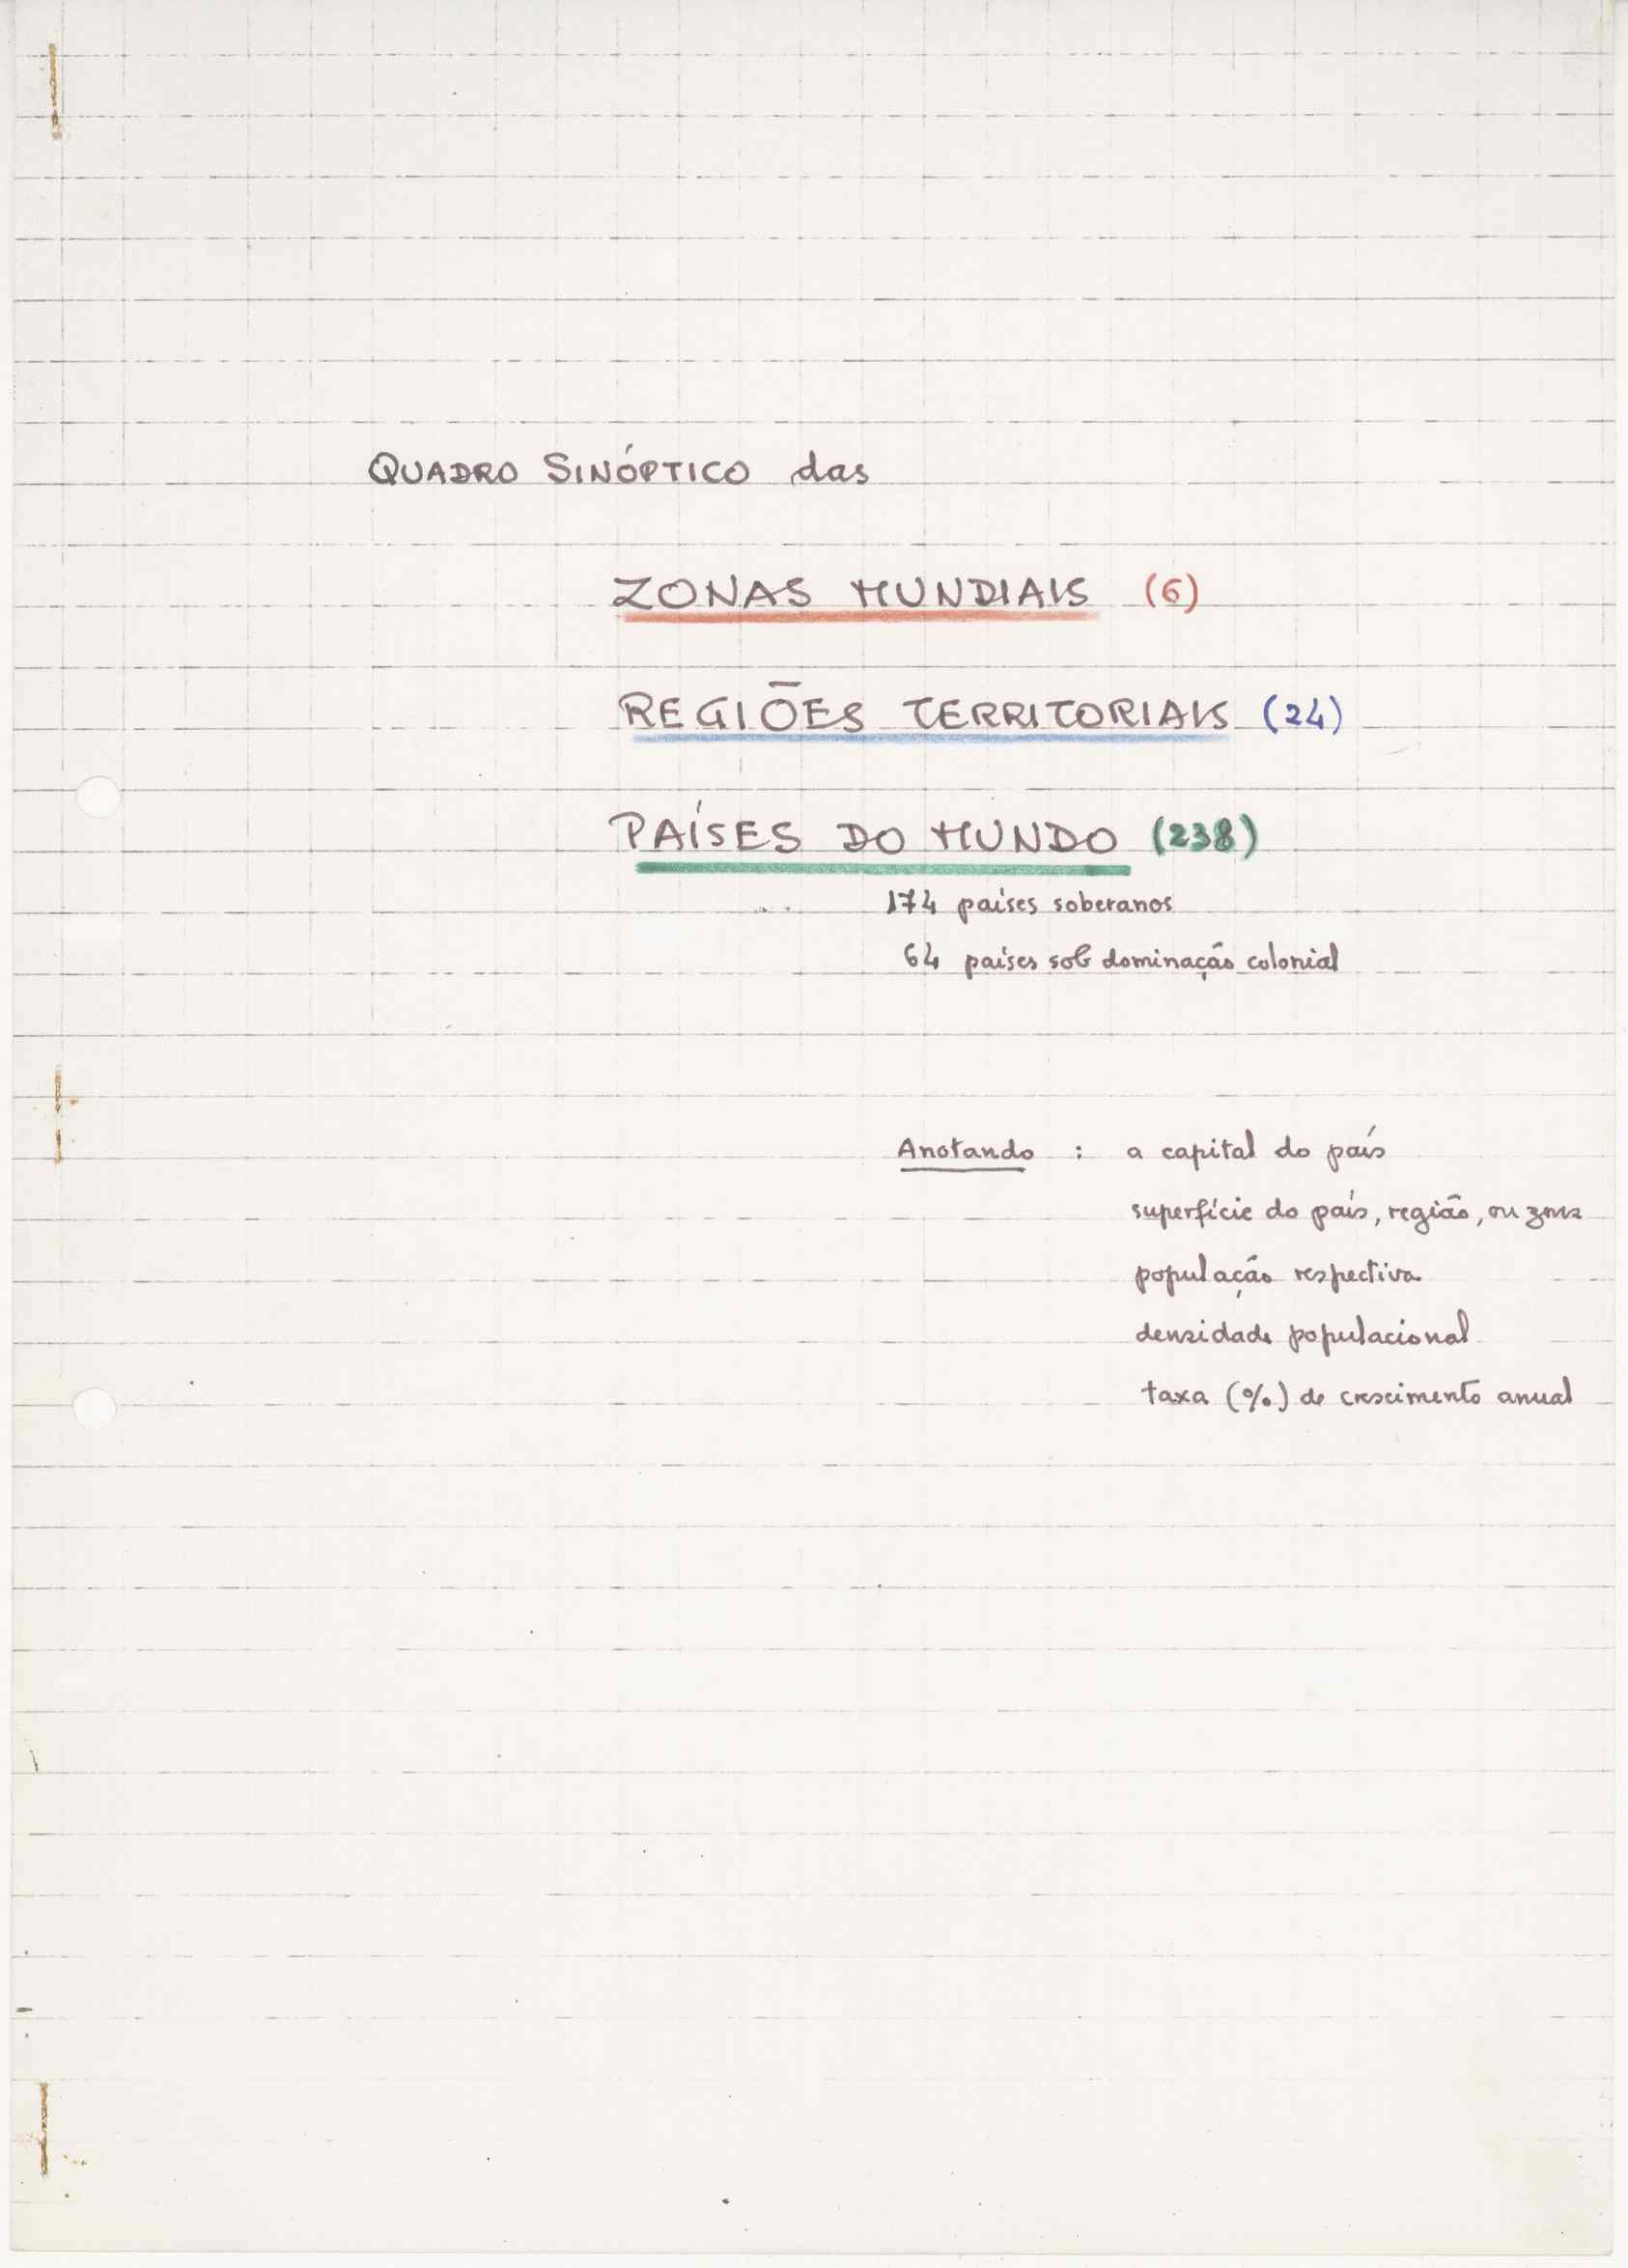 QUADRO SINÓPTICO das
ZONAS MUNDIAIS (6)
REGIÕES TERRITORIAIS (24)
PAÍSES DO MUNDO (238)
174 países soberanos
64 países sob dominação colonial
Anotando : a capital do país
superfície do país, região, ou zona
população respectiva
densidade populacional
taxa (%) de crescimento anual